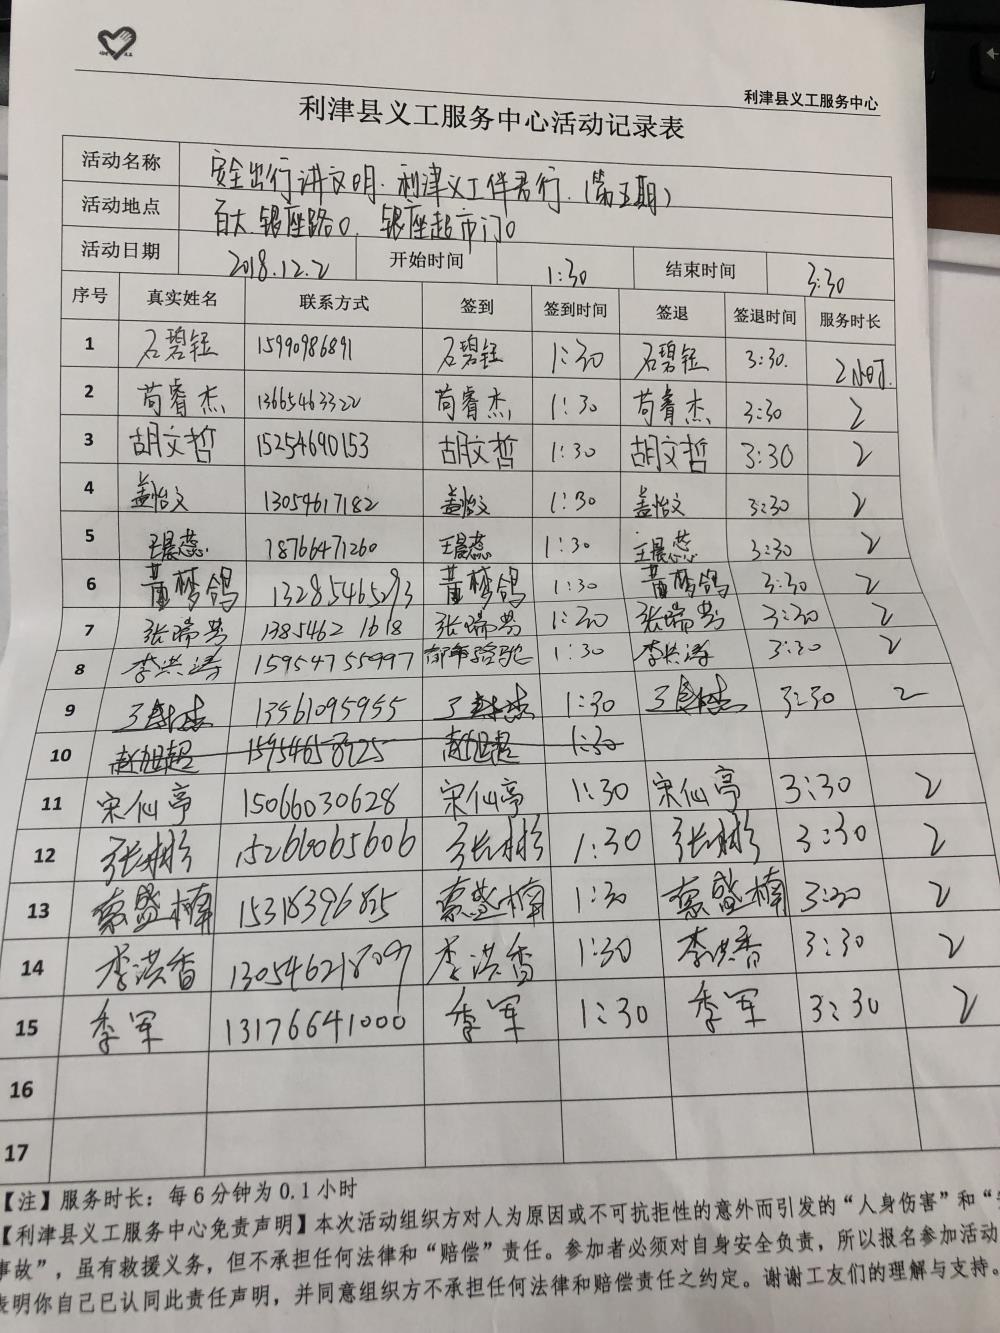 利津县义工服务中心
利津县义工服务中心活动记录表
活动名称 安全出行讲文明.利津义工伴君行.(第五期)
活动地点 百大.银座路口.银座超市门口
活动日期 2018.12.2 开始时间 1:30 结束时间 3:30
序号 真实姓名 联系方式 签到 签到时间 签退 签退时间 服务时长
1 石碧钰 15990986891 石碧钰 1:30 石碧钰 3:30. 2小时.
2 苟睿杰 13665463322 苟睿杰 1:30 苟睿杰 3:30 2
3 胡文哲 15254690153 胡文哲 1:30 胡文哲 3:30 2
4 盖怡文 13054617182 盖怡文 1:30 盖怡文 3:30 2
5 王晨蕊 18766471260 王晨蕊 1:30 王晨蕊 3:30 2
6 董梦鸽 13285465293 董梦鸽 1:30 董梦鸽 3:30 2
7 张瑞芸 1385462 1618 张瑞芸 1:30 张瑞芸 3:30 2
8 李洪涛 15954755997 1:30 李洪涛 3:30 2
9 13561095955 1:30 3:30 2
10 赵旭超 15954658925 赵旭超 1:30
11 宋仙亭 15066030628 宋仙亭 1:30 宋仙亭 3:30 2
12 张彬彬 15266065606 张彬彬 1:30 张彬彬 3:30 2
13 綦盛楠 綦盛楠 1:30 綦盛楠 3:30 2
14 李洪香 李洪香 1:30 李洪香 3:30 2
15 季军 13176641000 季军 1:30 季军 3:30 2
16
17
【注】服务时长：每6分钟为0.1小时
【利津县义工服务中心免责声明】本次活动组织方对人为原因或不可抗拒性的意外而引发的“人身伤害”和“
事故”，虽有救援义务，但不承担任何法律和“赔偿”责任。参加者必须对自身安全负责，所以报名参加活动
表明你自己已认同此责任声明，并同意组织方不承担任何法律和赔偿责任之约定。谢谢工友们的理解与支持。